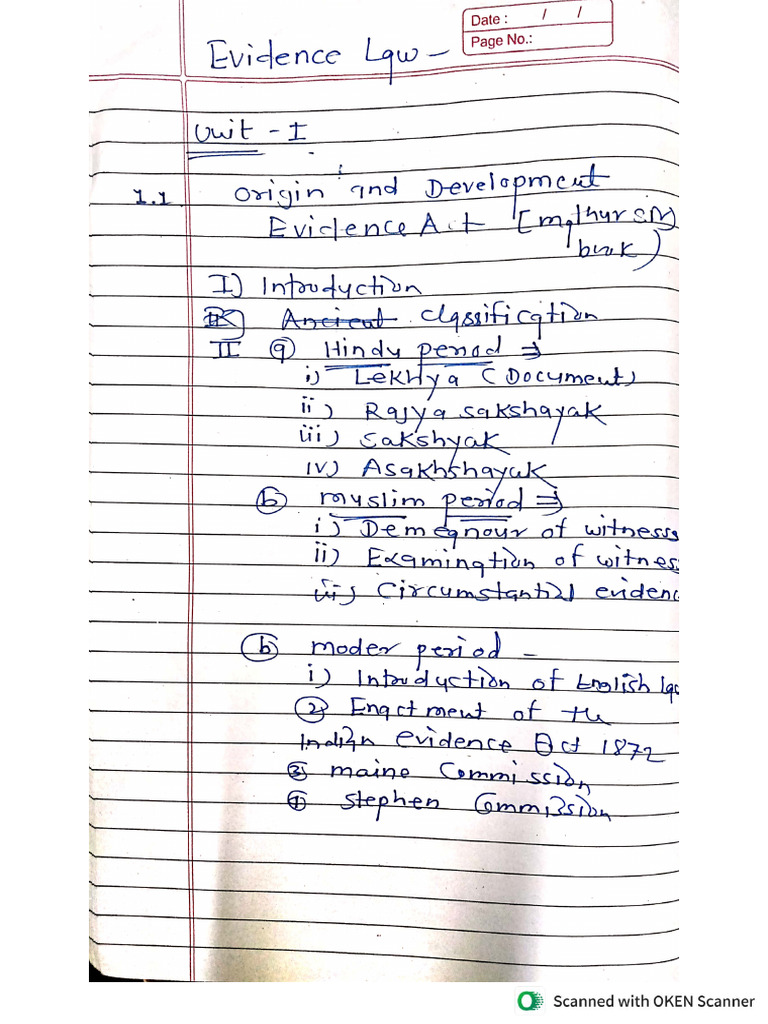 Date : / /
Page No.:
Evidence Law -
Unit - I
1.1 Origin and Development
Evidence Act [mathur SN
book)
I) Introduction
Ancient classification
II (a) Hindu period ⇒
i) Lekhya (Document)
ii) Rajya sakshayak
iii) sakshyak
iv) Asakhshayak
(b) muslim period ⇒
i) Demeanour of witness
ii) Examination of witnes
iii) Circumstantial evidenc
(b) moder period -
i) Introduction of English la
(2) Enactment of the
Indian evidence Act 1872
(3) maine Commission
(4) Stephen Commission
Scanned with OKEN Scanner